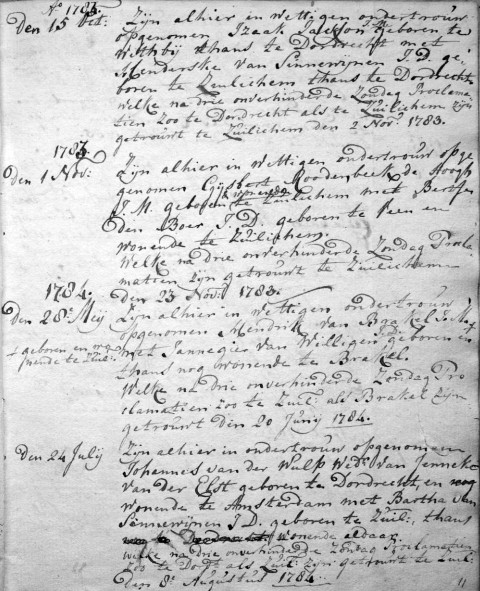 Ao 1783.
Den 15 Oct: Zijn alhier in wettigen ondertrouw
opgenomen Izaak Jackson J:M: geboren te
thans te Dordrecht met
Henderske van Sinnewijnen J.D. ge-
boren te Zuilichem thans te Dordrecht
welke na drie onverhinderde Zondag Proclama
tien zoo te Dordrecht als te Zuilichem zijn
getrouwt te Zuilichem den 2 Nov: 1783.
1783.
Den 1 Nov: Zijn alhier in wettigen ondertrouw opge
genomen Gijsbert Roodenbeek de Hoogh
J.M. geboren te Zuilichem met
den Boer J.D. geboren te Veen en
wonende te Zuilichem.
Welke na drie onverhinderde Zondag Procla-
matien zijn getrouwt te Zuilichem
den 23 Nov: 1783.
1784.
Den 28e Meij Zijn alhier in wettigen ondertrouw
opgenomen Hendrik van Brakel J:M:
+ geboren en wo
nende te Zuil:
met Jannegier van Willigen geboren en
thans nog wonende te Brakel.
Welke na drie onverhinderde Zondag Pro
clamatien zoo te Zuil: als Brakel zijn
getrouwt den 20 Junij 1784.
Den 24 Julij Zijn alhier in ondertrouw opgenomen
Johannes van der Wulp Wedr van Jenneke
van der Elst geboren te Dordrecht, en nog
wonende te Amsterdam met Bartha van
Sinnewijnen J.D. geboren te Zuil:, thans
wonende aldaar.
welke na drie onverhinderde Zondag Proclamatien
zoo te Dordt als Zuil: zijn getrouwt te Zuil:
den 8e Augustus 1784.
11